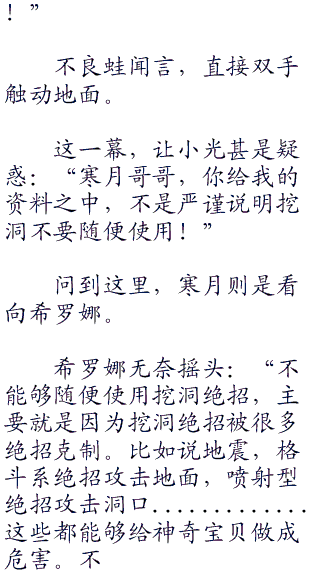 ！”
不良蛙闻言，直接双手
触动地面。
这一幕，让小光甚是疑
惑：“寒月哥哥，你给我的
资料之中，不是严谨说明挖
洞不要随便使用！”
问到这里，寒月则是看
向希罗娜。
希罗娜无奈摇头：“不
能够随便使用挖洞绝招，主
要就是因为挖洞绝招被很多
绝招克制。比如说地震，格
斗系绝招攻击地面，喷射型
绝招攻击洞口.............
这些都能够给神奇宝贝做成
危害。不